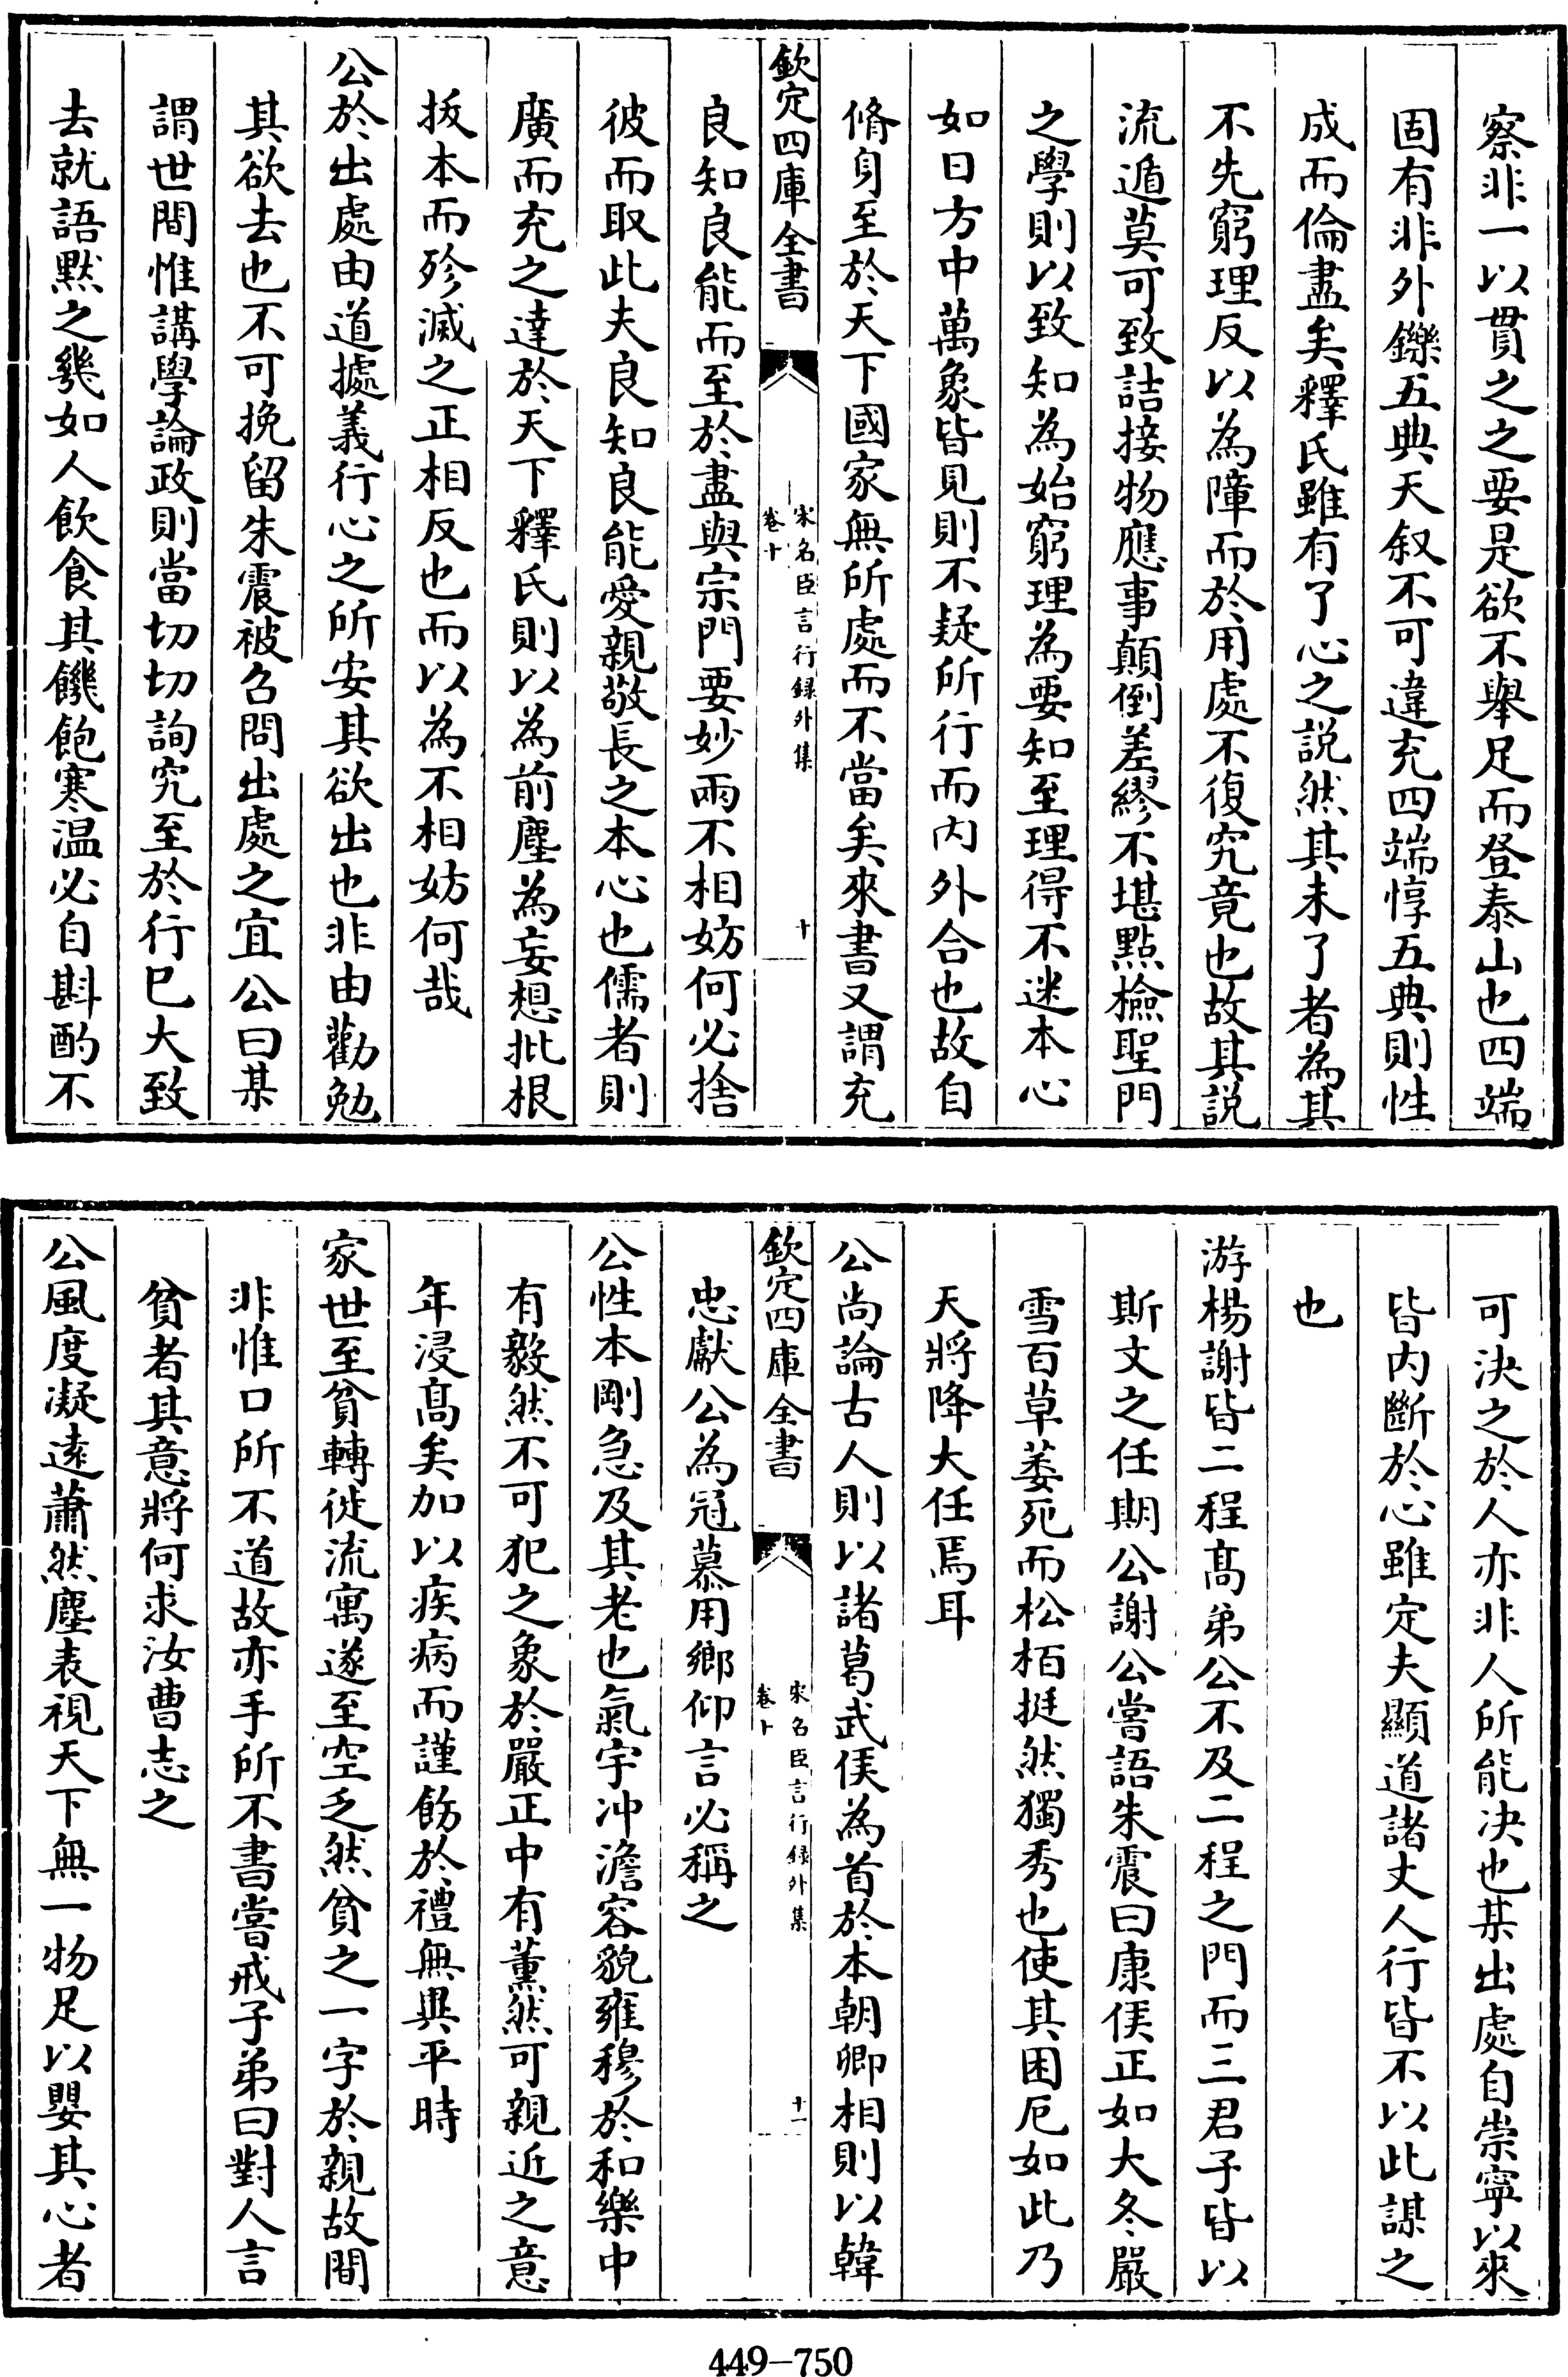 察非一以貫之之要是欲不舉足而登泰山也四端
固有非外鑠五典天叙不可違充四端惇五典則性
成而倫盡矣釋氏雖有了心之説然其未了者為其
不先窮理反以為障而於用處不復究竟也故其説
流遁莫可致詰接物應事顛倒差繆不堪點檢聖門
之學則以致知為始窮理為要知至理得不迷本心
如日方中萬象皆見則不疑所行而内外合也故自
脩身至於天下國家無所處而不當矣來書又謂充
欽定四庫全書
宋名臣言行録外集
卷十
十
良知良能而至於盡與宗門要妙兩不相妨何必捨
彼而取此夫良知良能愛親敬長之本心也儒者則
廣而充之達於天下釋氏則以為前塵為妄想批根
拔本而殄滅之正相反也而以為不相妨何哉
公於出處由道據義行心之所安其欲出也非由勸勉
其欲去也不可挽留朱震被召問出處之宜公曰某
謂世間惟講學論政則當切切詢究至於行巳大致
去就語黙之幾如人飲食其饑飽寒温必自斟酌不
可決之於人亦非人所能决也某出處自崇寧以來
皆内斷於心雖定夫顯道諸丈人行皆不以此謀之
也
游楊謝皆二程髙弟公不及二程之門而三君子皆以
斯文之任期公謝公嘗語朱震曰康侯正如大冬嚴
雪百草萎死而松栢挺然獨秀也使其困厄如此乃
天將降大任焉耳
公尚論古人則以諸葛武侯為首於本朝卿相則以韓
欽定四庫全書
宋名臣言行録外集
卷十
十一
忠獻公為冠慕用鄉仰言必稱之
公性本剛急及其老也氣宇冲澹容貌雍穆於和樂中
有毅然不可犯之象於嚴正中有薰然可親近之意
年浸髙矣加以疾病而謹飭於禮無異平時
家世至貧轉徙流寓遂至空乏然貧之一字於親故間
非惟口所不道故亦手所不書嘗戒子弟曰對人言
貧者其意將何求汝曹志之
公風度凝逺蕭然塵表視天下無一物足以嬰其心者
449-750